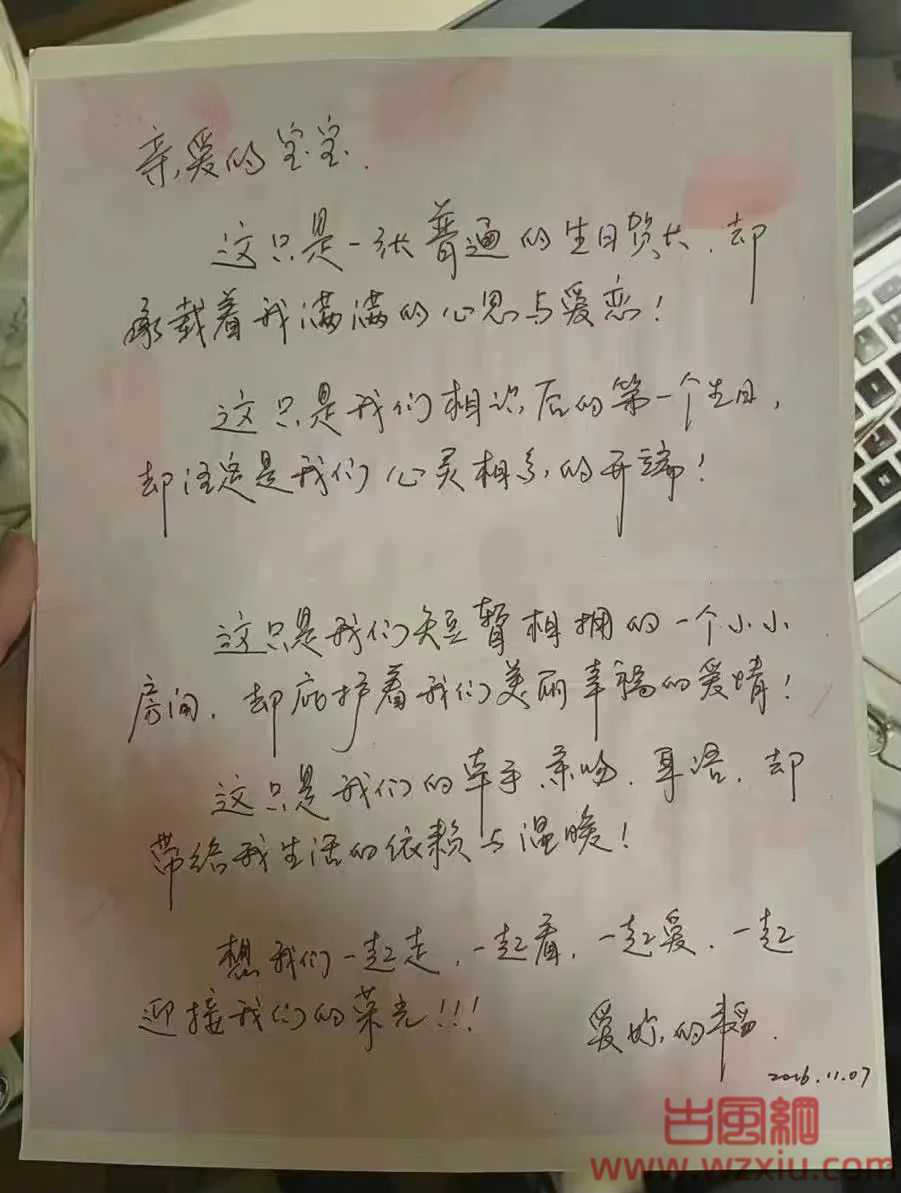 亲爱的宝宝.
这只是一张普通的生日贺卡.却
承载着我满满的心思与爱恋!
这只是我们相识后的第一个生日,
却注定是我们心灵相系的开端!
这只是我们短暂相拥的一个小小
房间.却庇护着我们美丽幸福的爱情!
这只是我们的牵手.亲吻.耳语.却
带给我生活的依赖与温暖!
想我们一起走.一起看.一起爱.一起
迎接我们的荣光!!!
爱妳的
2016.11.07
古風網
www.wzxiu.com